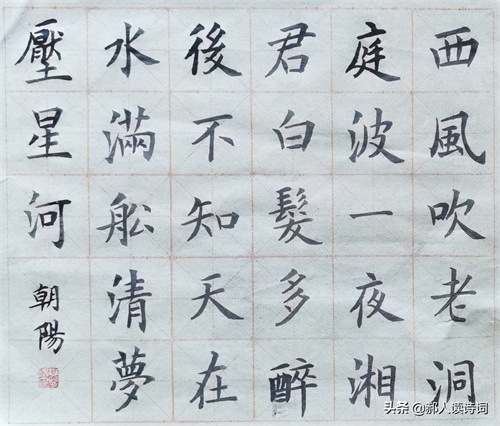 西風吹老洞
庭波一夜湘
君白髮多醉
後不知天在
水滿船清夢
壓星河
朝陽
头条 @郝人读诗词